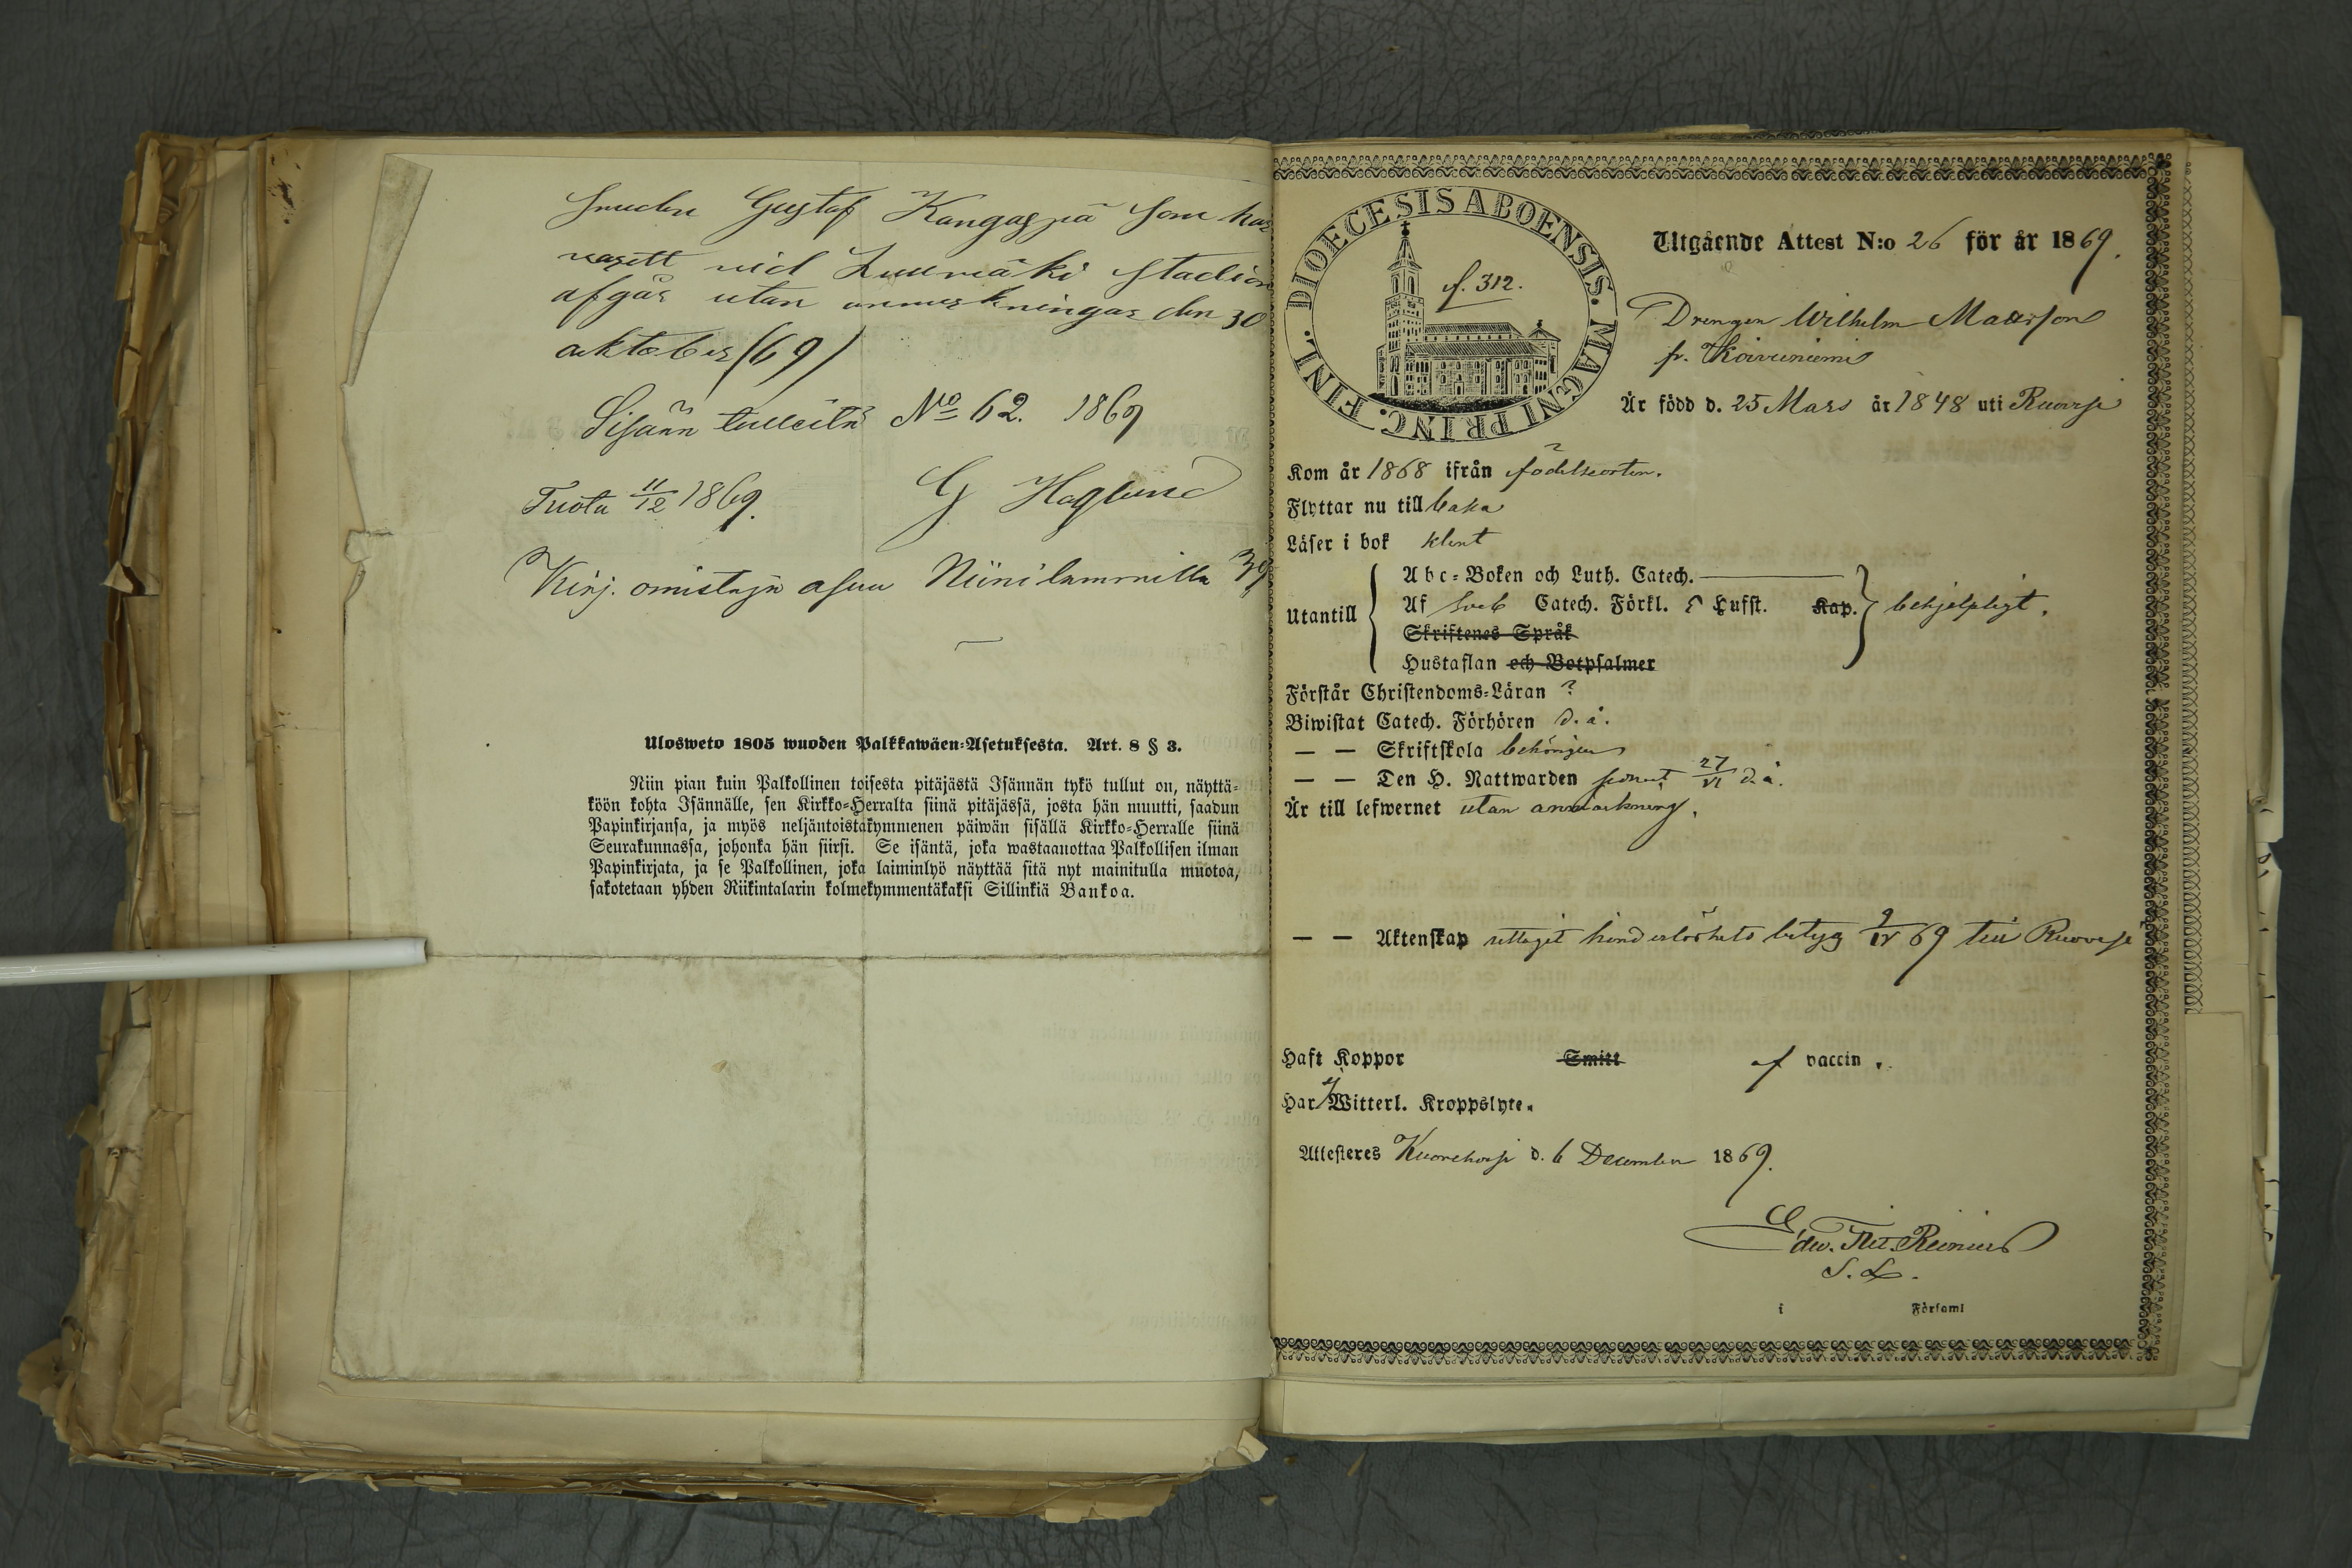 Smeden Gustaf Kangaspä som har
varitt vid Luumäki stadion
afgår utan anmerkningar den 30
oktober (69)
Sisään tulleita No 62. 1869
Tuotu 11/12 1869. G Haglund
Kirj. omistaja asuu Niinilammilla 39
Ulosweto 1805 wuoden Palkkawäen-Asetuksesta. Art. 8 § 3.
Niin pian kuin Palkollinen toisesta pitäjästä Isännän tykö tullut on, näyttä-
köön kohta Isännälle, sen Kirkko-Herralta siinä pitäjässä, josta hän muutti, saadun
Papinkirjansa, ja myös neljäntoistakymmenen päiwän sisällä Kirkko-Herralle siinä
Seurakunnassa, johonka hän siirsi. Se isäntä, joka wastaanottaa Palkollisen ilman
Papinkirjata, ja se Palkollinen, joka laiminlyö näyttää sitä nyt mainitulla muotoa,
sakotetaan yhden Riikintalarin kolmekymmentäkaksi Sillinkiä Bankoa.
DIOECESIS ABOENSIS. MAGNI PRINC. FINL.
f. 312.
Utgående Attest N:o 26 för år 1869.
Drengen Wilhelm Mattsson
fr. Koivuniemi
Är född d. 25 Mars år 1848 uti Ruovesi
Kom år 1868 ifrån födelseorten.
Flyttar nu till baka
Läser i bok klent
Utantill
Abc-Boken och Luth. Catech.
Af Sveb Catech. Förkl. Hufst. Kap. behjelpligt.
Skriftenes Språk
Hustaflan och Botpsalmer
Förstår Christendoms-Läran ?
Biwistat Catech. Förhören d. å.
— — Skriftskola behörigen
— — Den H. Nattwarden senast 27/VI d. å.
Är till lefwernet utan anmärkning.
— — Äktenskap uttagit hinderlöshets betyg 9/IV 69 till Ruovesi
Haft Koppor Smitt af vaccin.
Har ej Witterl. Kroppslyte.
Attesteres Kuorehvesi d. 6 December 1869.
Edv. Reinius
S. L.
i Församl